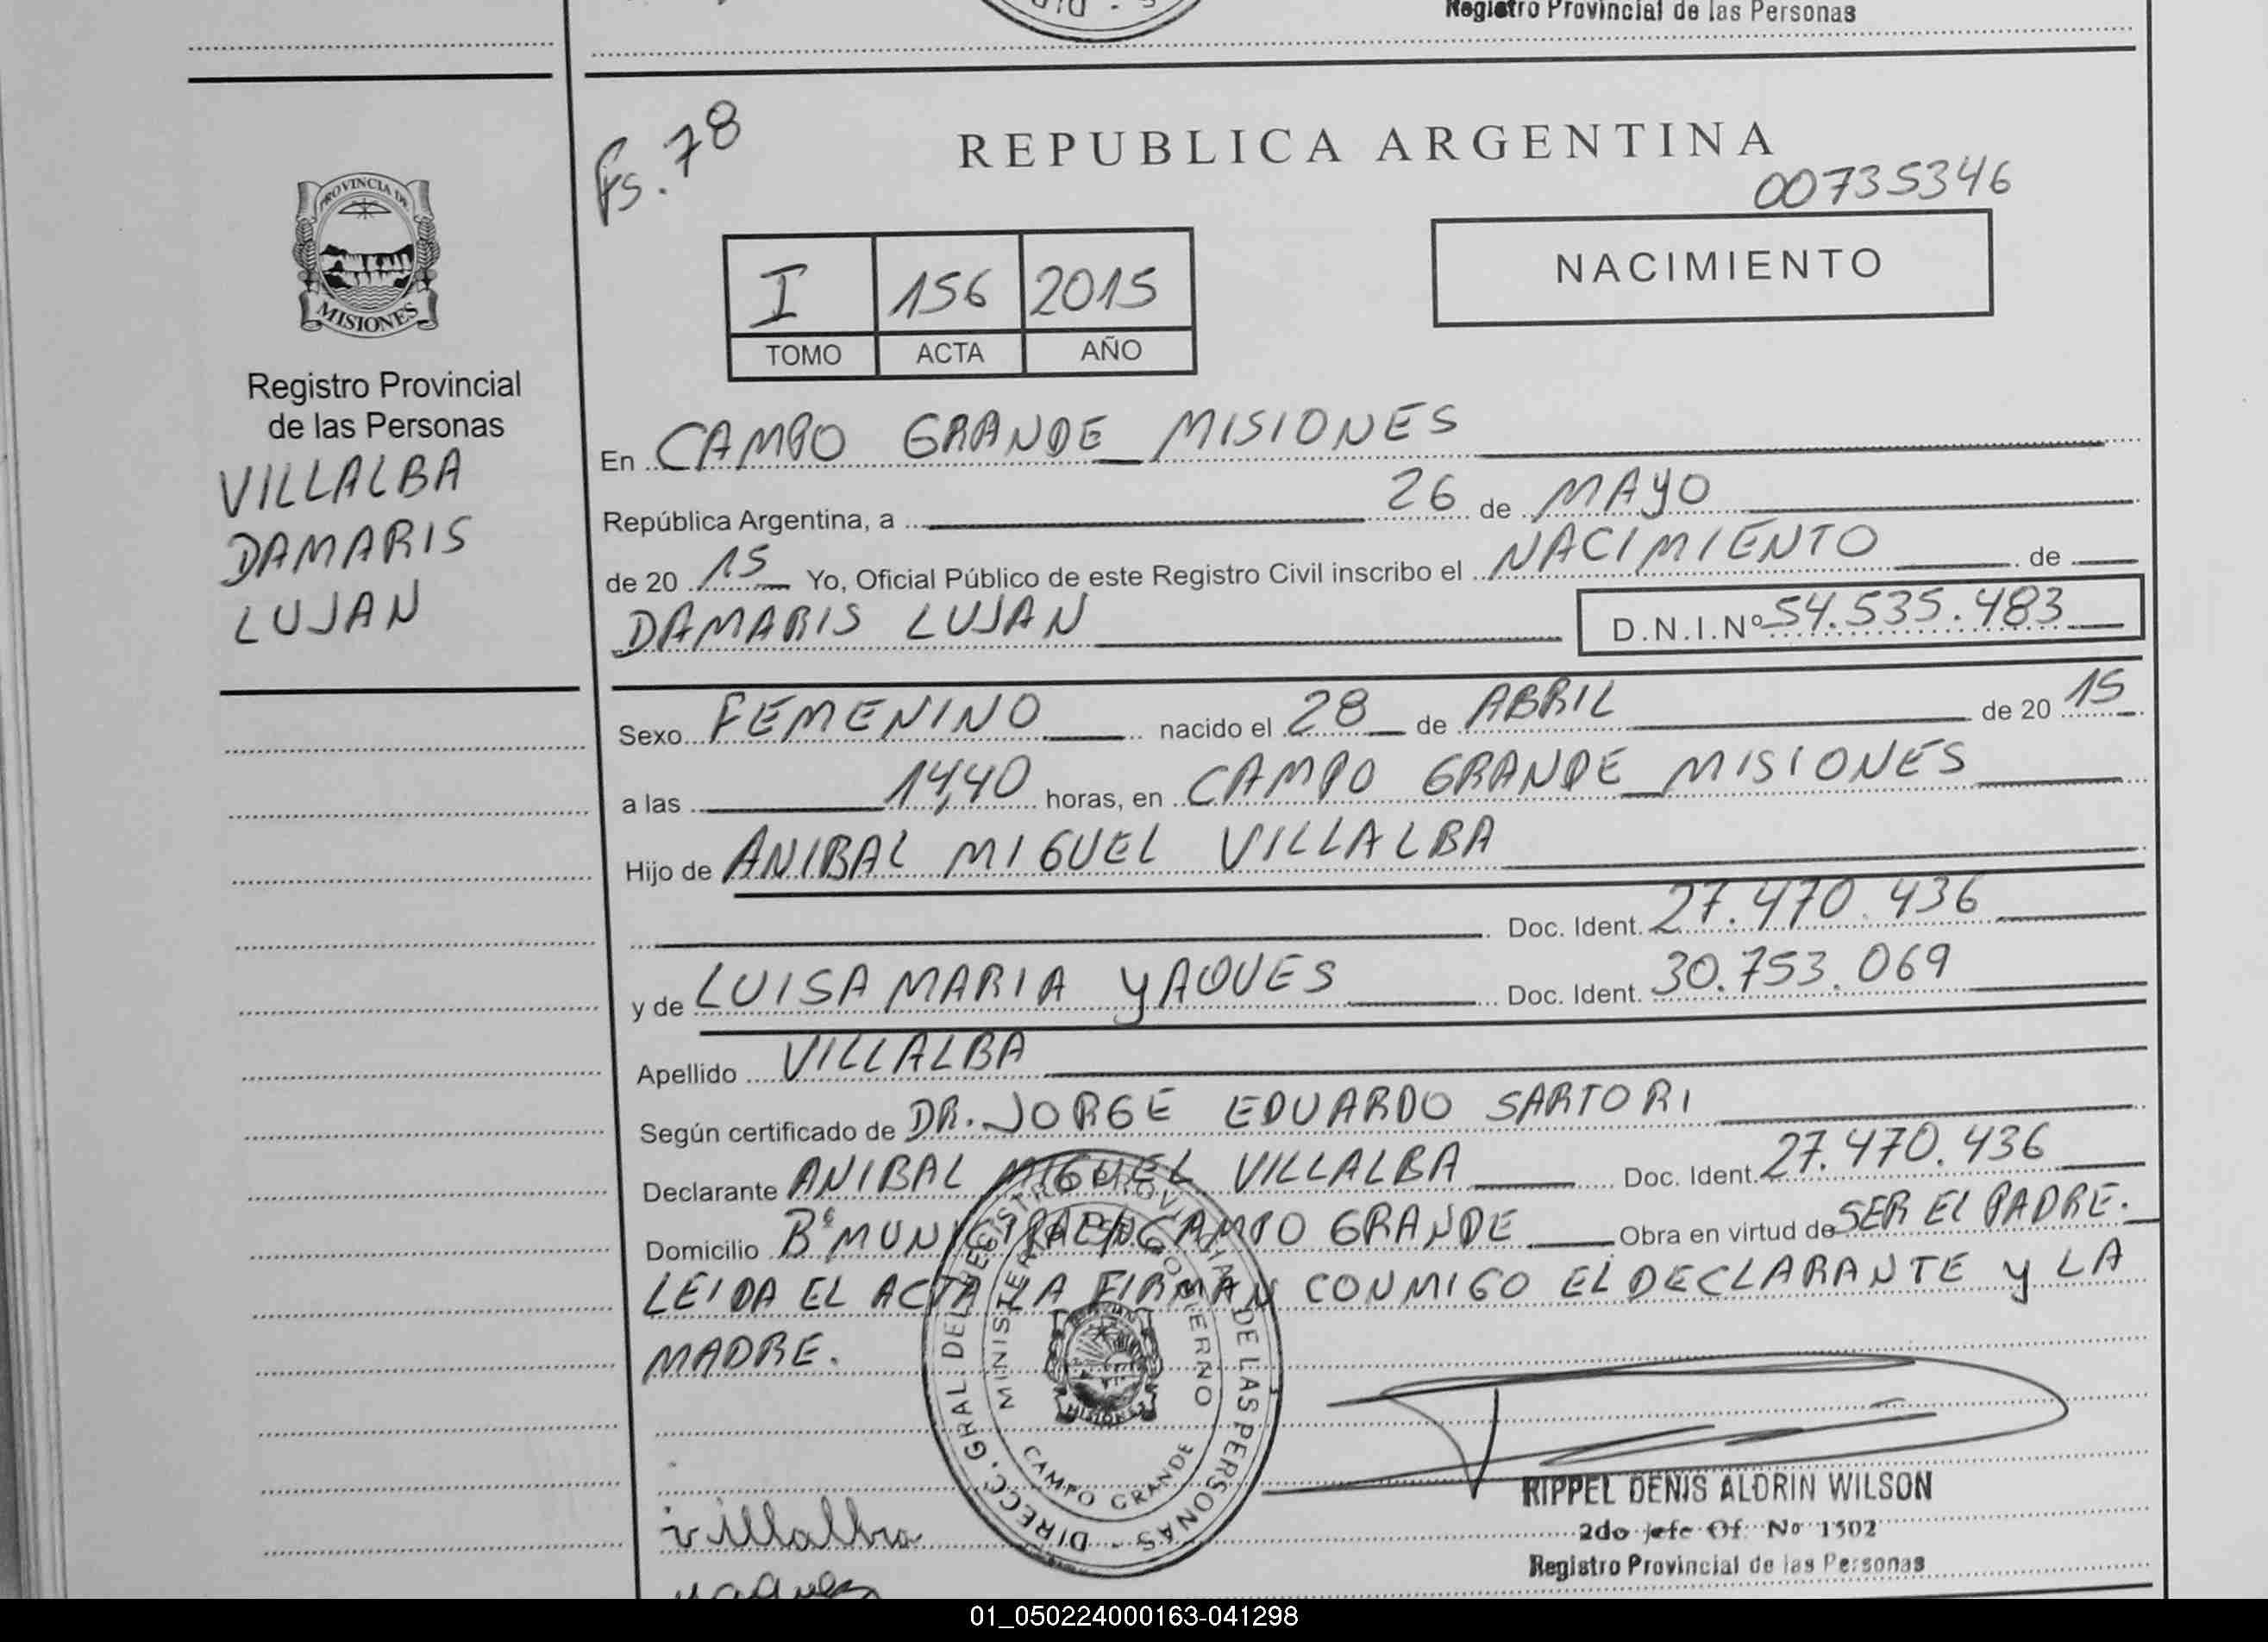 Registro Provincial de las Personas
Fs. 78
REPUBLICA ARGENTINA
00735346
PROVINCIA DE
MISIONES
I 156 2015
TOMO ACTA AÑO
NACIMIENTO
Registro Provincial
de las Personas
VILLALBA
DAMARIS
LUJAN
En CAMPO GRANDE_MISIONES
República Argentina, a 26 de MAYO
de 20 15 Yo, Oficial Público de este Registro Civil inscribo el NACIMIENTO de
DAMARIS LUJAN D.N.I.Nº 54.535.483
Sexo FEMENINO nacido el 28 de ABRIL de 20 15
a las 14,40 horas, en CAMPO GRANDE_MISIONES
Hijo de ANIBAL MIGUEL VILLALBA
Doc. Ident. 27.470.436
y de LUISA MARIA YAQUES Doc. Ident. 30.753.069
Apellido VILLALBA
Según certificado de DR. JORGE EDUARDO SARTORI
Declarante ANIBAL MIGUEL VILLALBA Doc. Ident. 27.470.436
Domicilio Bº MUNICIPAL CAMPO GRANDE Obra en virtud de SER EL PADRE.
LEIDA EL ACTA LA FIRMAN CONMIGO EL DECLARANTE Y LA
MADRE.
DIRECC. GRAL. DEL REGISTRO PROVINCIAL DE LAS PERSONAS -
MINISTERIO DE GOBIERNO
MISIONES
CAMPO GRANDE
villalba
yaques
RIPPEL DENIS ALDRIN WILSON
2do jefe Of. Nº 1502
Registro Provincial de las Personas
01_050224000163-041298